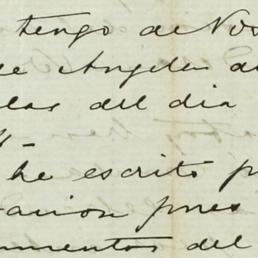 tengo de Vos
de Angeles de
las del dia
he escrito p
acion pues
mentos del